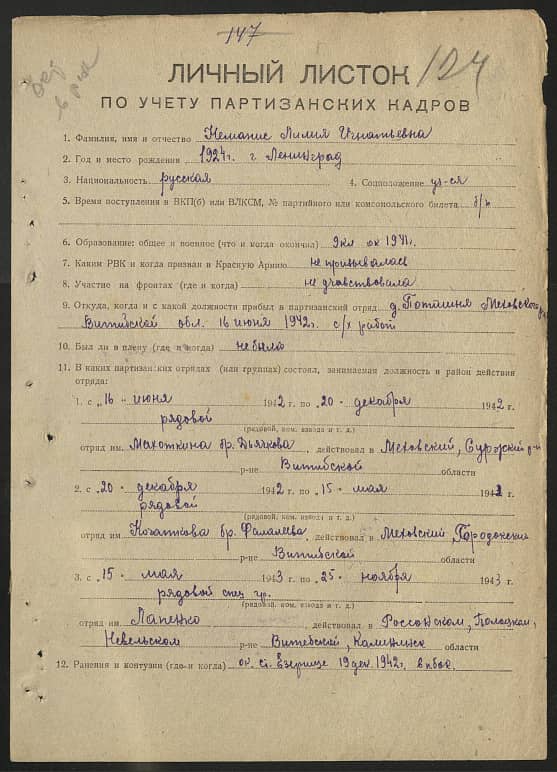 147
124
ЛИЧНЫЙ ЛИСТОК
ПО УЧЕТУ ПАРТИЗАНСКИХ КАДРОВ
1. Фамилия, имя и отчество Немапие Лилия Игнатьевна
2. Год и место рождения 1924г. г Ленинград
3. Национальность русская 4. Соцположение уч-ся
5. Время поступления в ВКП(б) или ВЛКСМ, № партийного или комсомольского билета б/п
6. Образование: общее и военное (что и когда окончил) 9кл ок 1941г.
7. Каким РВК и когда призван в Красную Армию не призывалась
8. Участие на фронтах (где и когда) не участвовала
9. Откуда, когда и с какой должности прибыл в партизанский отряд д. Меховского
Витебской обл. 16 июня 1942г. с/х работ
10. Был ли в плену (где и когда) не была
11. В каких партизанских отрядах (или группах) состоял, занимаемая должность и район действия
отряда:
1. с "16" июня 1942 г. по "20" декабря 1942 г.
рядовой
(рядовой, ком. взвода и т. д.)
отряд им. Махоткина бр. Дьячкова, действовал в Меховский, Суражский р-н
р-не Витебской области
2. с "20" декабря 1942 г. по "15" мая 1943
рядовой
(рядовой, ком. взвода и т. д.)
отряд им бр. Фалалеева, действовал в Меховский, Городокский
р-не Витебской области
3. с "15" мая 1943 г. по "25" ноября 1943 г
рядовой спец гр.
(рядовой, ком. взвода и т. д.)
отряд им. Лапенко, действовал в Россонском, Полоцком,
Невельском р-не Витебской, Калининск области
12. Ранения и контузии (где и когда) ок. ст. Езерище 19 дек. 1942г. в